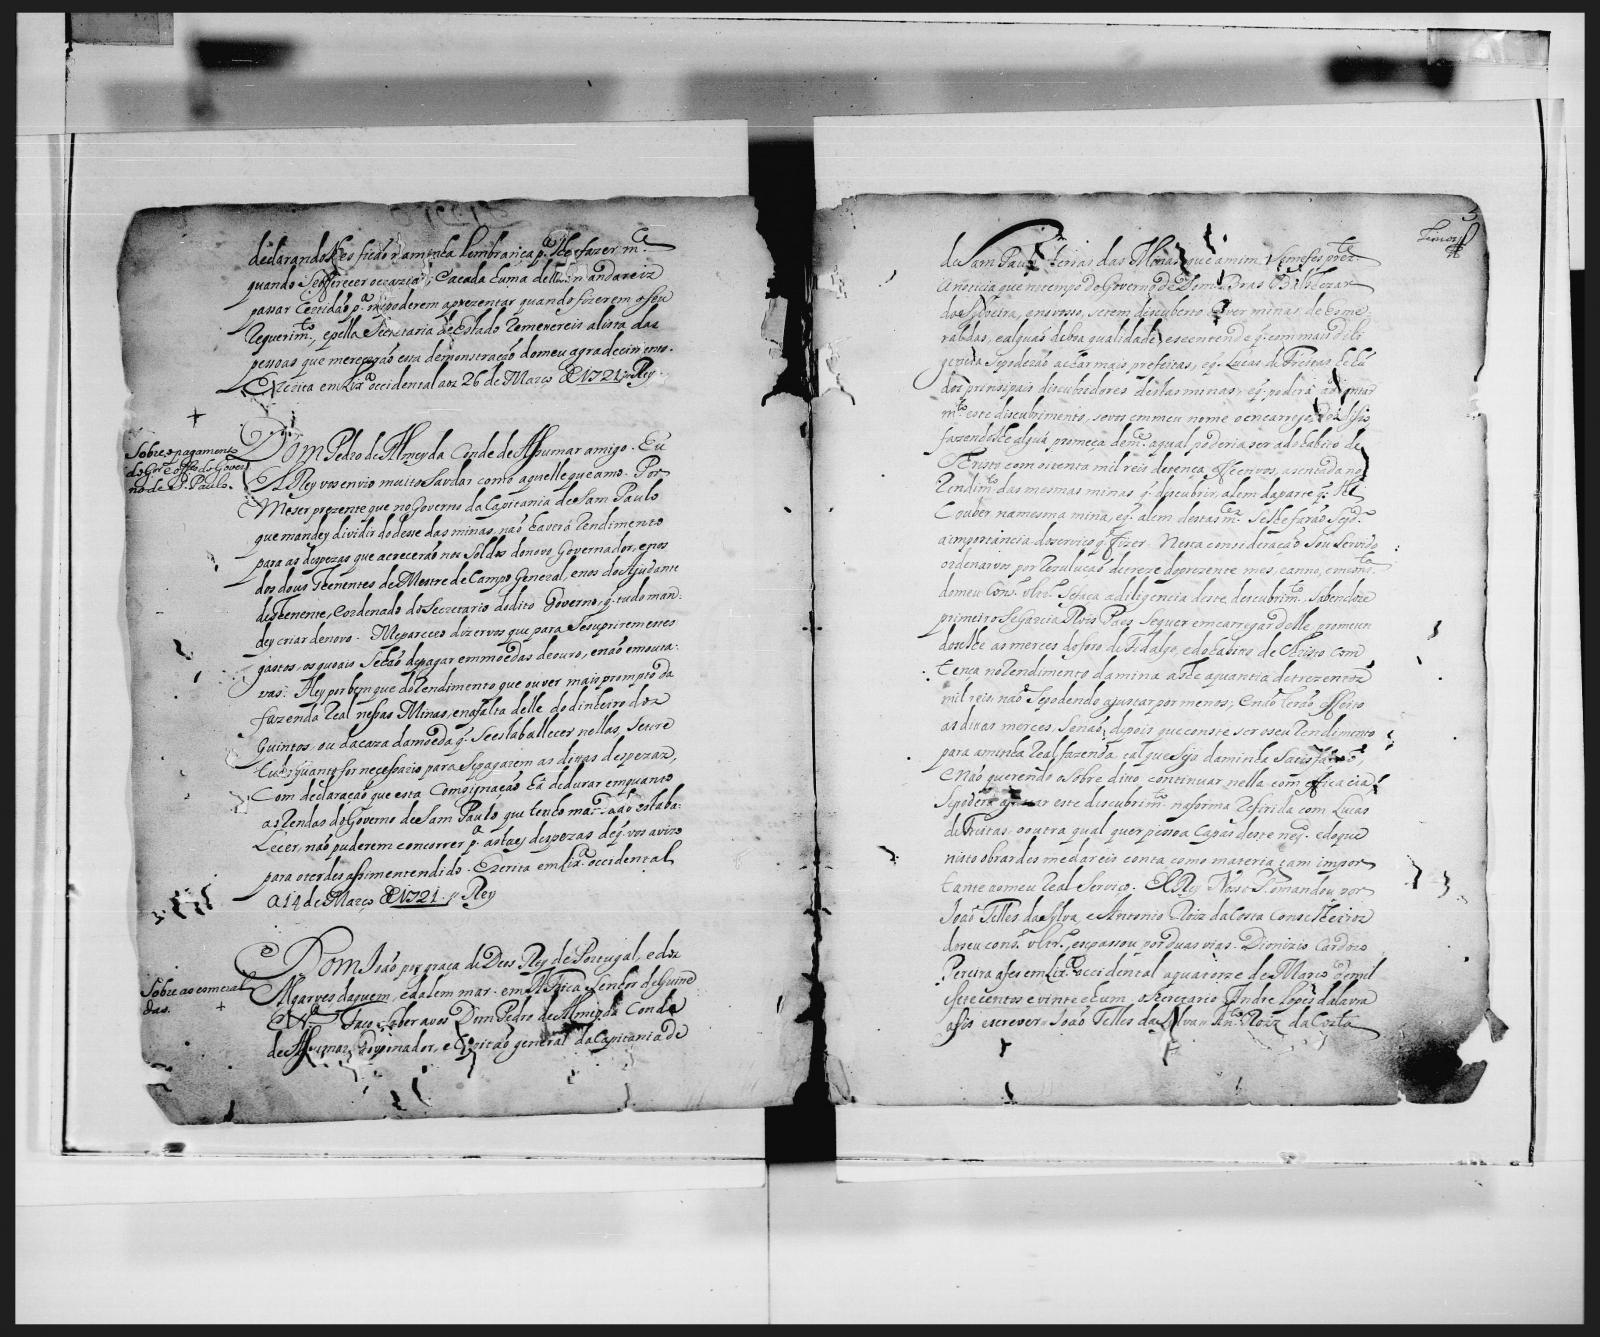 declarandolhes ficão na minha lembrança p.ª lhes fazer m.ce
quando se offerecer occazião, e a cada huma dellas mandareiz
passar certidão p.ª a poderem aprezentar quando fizerem o seu
requerim.to, e pella Secretaria de Estado remetereis a lista das
pessoas que merecerão esta demonstração do meu agradecimento.
Escrita em Lix.ª occidental aos 26 de Março de 1721 // Rey.
Sobre o pagamento
do G.or e off.es do Gover
no de S. Paulo.
Dom Pedro de Almeyda Conde de Assumar amigo. Eu
El Rey vos envio muito saudar como aquelle que amo. Por
Me ser prezente que no Governo da Capitania de Sam Paulo
que mandey dividir do deste das minas, não haverá rendimento
para as despezas que acrecerão nos Soldos do novo Governador, e nos
dos dous Tenentes de Mestre de Campo General, e nos do Ajudante
de Tenente, e ordenado do Secretario do dito Governo, q. tudo man:
dey criar de novo. Me pareceo dizervos que para se suprirem estes
gastos, os quoais se hão de pagar em moedas de ouro, e não em outa:
vas. Hey por bem que do rendimento que ouver mais prompto da
fazenda Real nessas Minas, e na falta delle do dinheiro dos
Quintos, ou da caza da moeda q. se estaballecer nellas, se tire
tudo quanto for necessario para se pagarem as ditas despezas,
Com declaração que esta Consignação há de durar emquanto
as rendas do Governo de Sam Paulo que tenho mandado estaba:
lecer, não puderem concorrer p.ª estas despezas de q. vos avizo
para o terdes assim entendido. Escrita em Lix.ª occidental
a 14 de Março de 1721 // Rey
Sobre as esmeral
das.
Dom João por graça de Deos Rey de Portugal, e dos
Algarves daquem, e dalem mar em Africa Senhor de Guiné
&.ª Faço saber a vos Dom Pedro de Almeyda Conde
de Assumar Governador, e Capitão general da Capitania de
de Sam Paulo e terras das Minas que a mim
a noticia que no tempo do Governo de Dom Bras Balthezar
da Sylveira, e no vosso, se tem descuberto haver minas de esme
raldas, e algũas de boa qualidade, e se entende q. com mais deli
gencia se poderão achar mais perfeitas, e q. Lucas de Freitas, he hũ
dos prinsipais discubridores destas minas, e q. poderá adiantar
m.to este discubrimento, se vos em meu nome o encarregardes disso
fazendolhe algũa promeça de m.ce a qual poderia ser a do habito de
Christo com oitenta mil reis de tença effectivos, asentada no
rendim.to das mesmas minas q. descubrir, alem da parte q. lhe
Couber na mesma mina, e q. alem destas m.ces se lhe farão seg.do
a importancia do serviço q. fizer. Nesta consideração Sou Servido
ordenarvos por rezulução de treze do prezente mes, e anno, em consulta
do meu Cons.º Ultr.º se faça a diligencia deste descubrim.to, sabendoce
primeiro se Garcia Rois Paes se quer emcarregar delle, prometen
doselhe as merces do foro de Fidalgo, e do habito de Christo com
tença no rendimento da mina athe a quantia de trezentos
mil reis, não se podendo ajustar por menos, e não terão effeito
as ditas merces, senão depois que conste ser o seu rendimento
para a minha real fazenda, e al que seja da minha satisfação,
e não querendo o sobre dito continuar nelle com efficacia,
se poderá ajustar este descubrim.to na forma referida com Lucas
de Freitas, ou outra qual quer pessoa capas deste neg.º e do que
nisto obrardes me dareis conta como materia tam impor
tante ao meu real Serviço. El Rey Nosso S.or o mandou por
João Telles da Sylva, e Antonio Roiz da Costa Conselheiros
do seu cons.º Ultr.º, e se passou por duas vias. Dionizio Cardozo
Pereira a fes em Lix.ª occidental a quatorze de Março de mil
setecentos e vinte e hum, o Secretario Andre Lopes da Lavra
a fis escrever // João Telles da Sylva // An.to Roiz da Costa